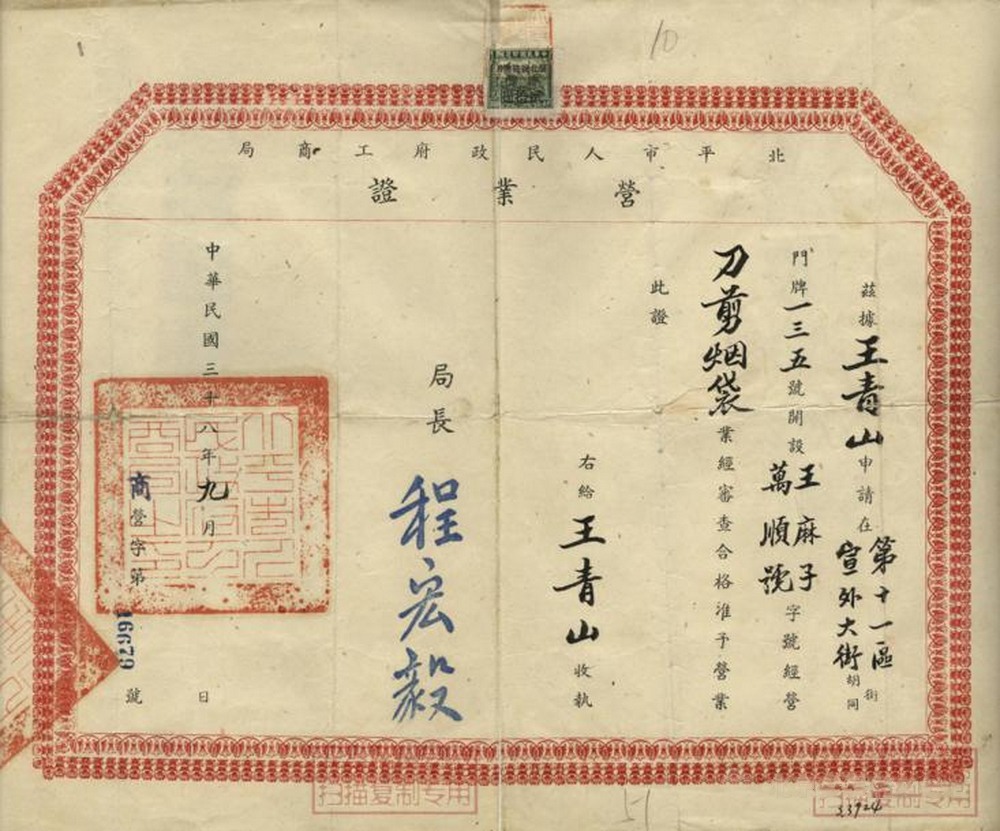 北平市人民政府工商局
營業證
茲據王青山申請在第十一區宣外大街街胡同
門牌一三五號開設王麻子萬順號字號經營
刀剪烟袋業經審查合格准予營業
此證
右給王青山收執
局長 程宏毅
中華民國三十八年九月 日
商營字第16679號
10
扫描复制专用
33924